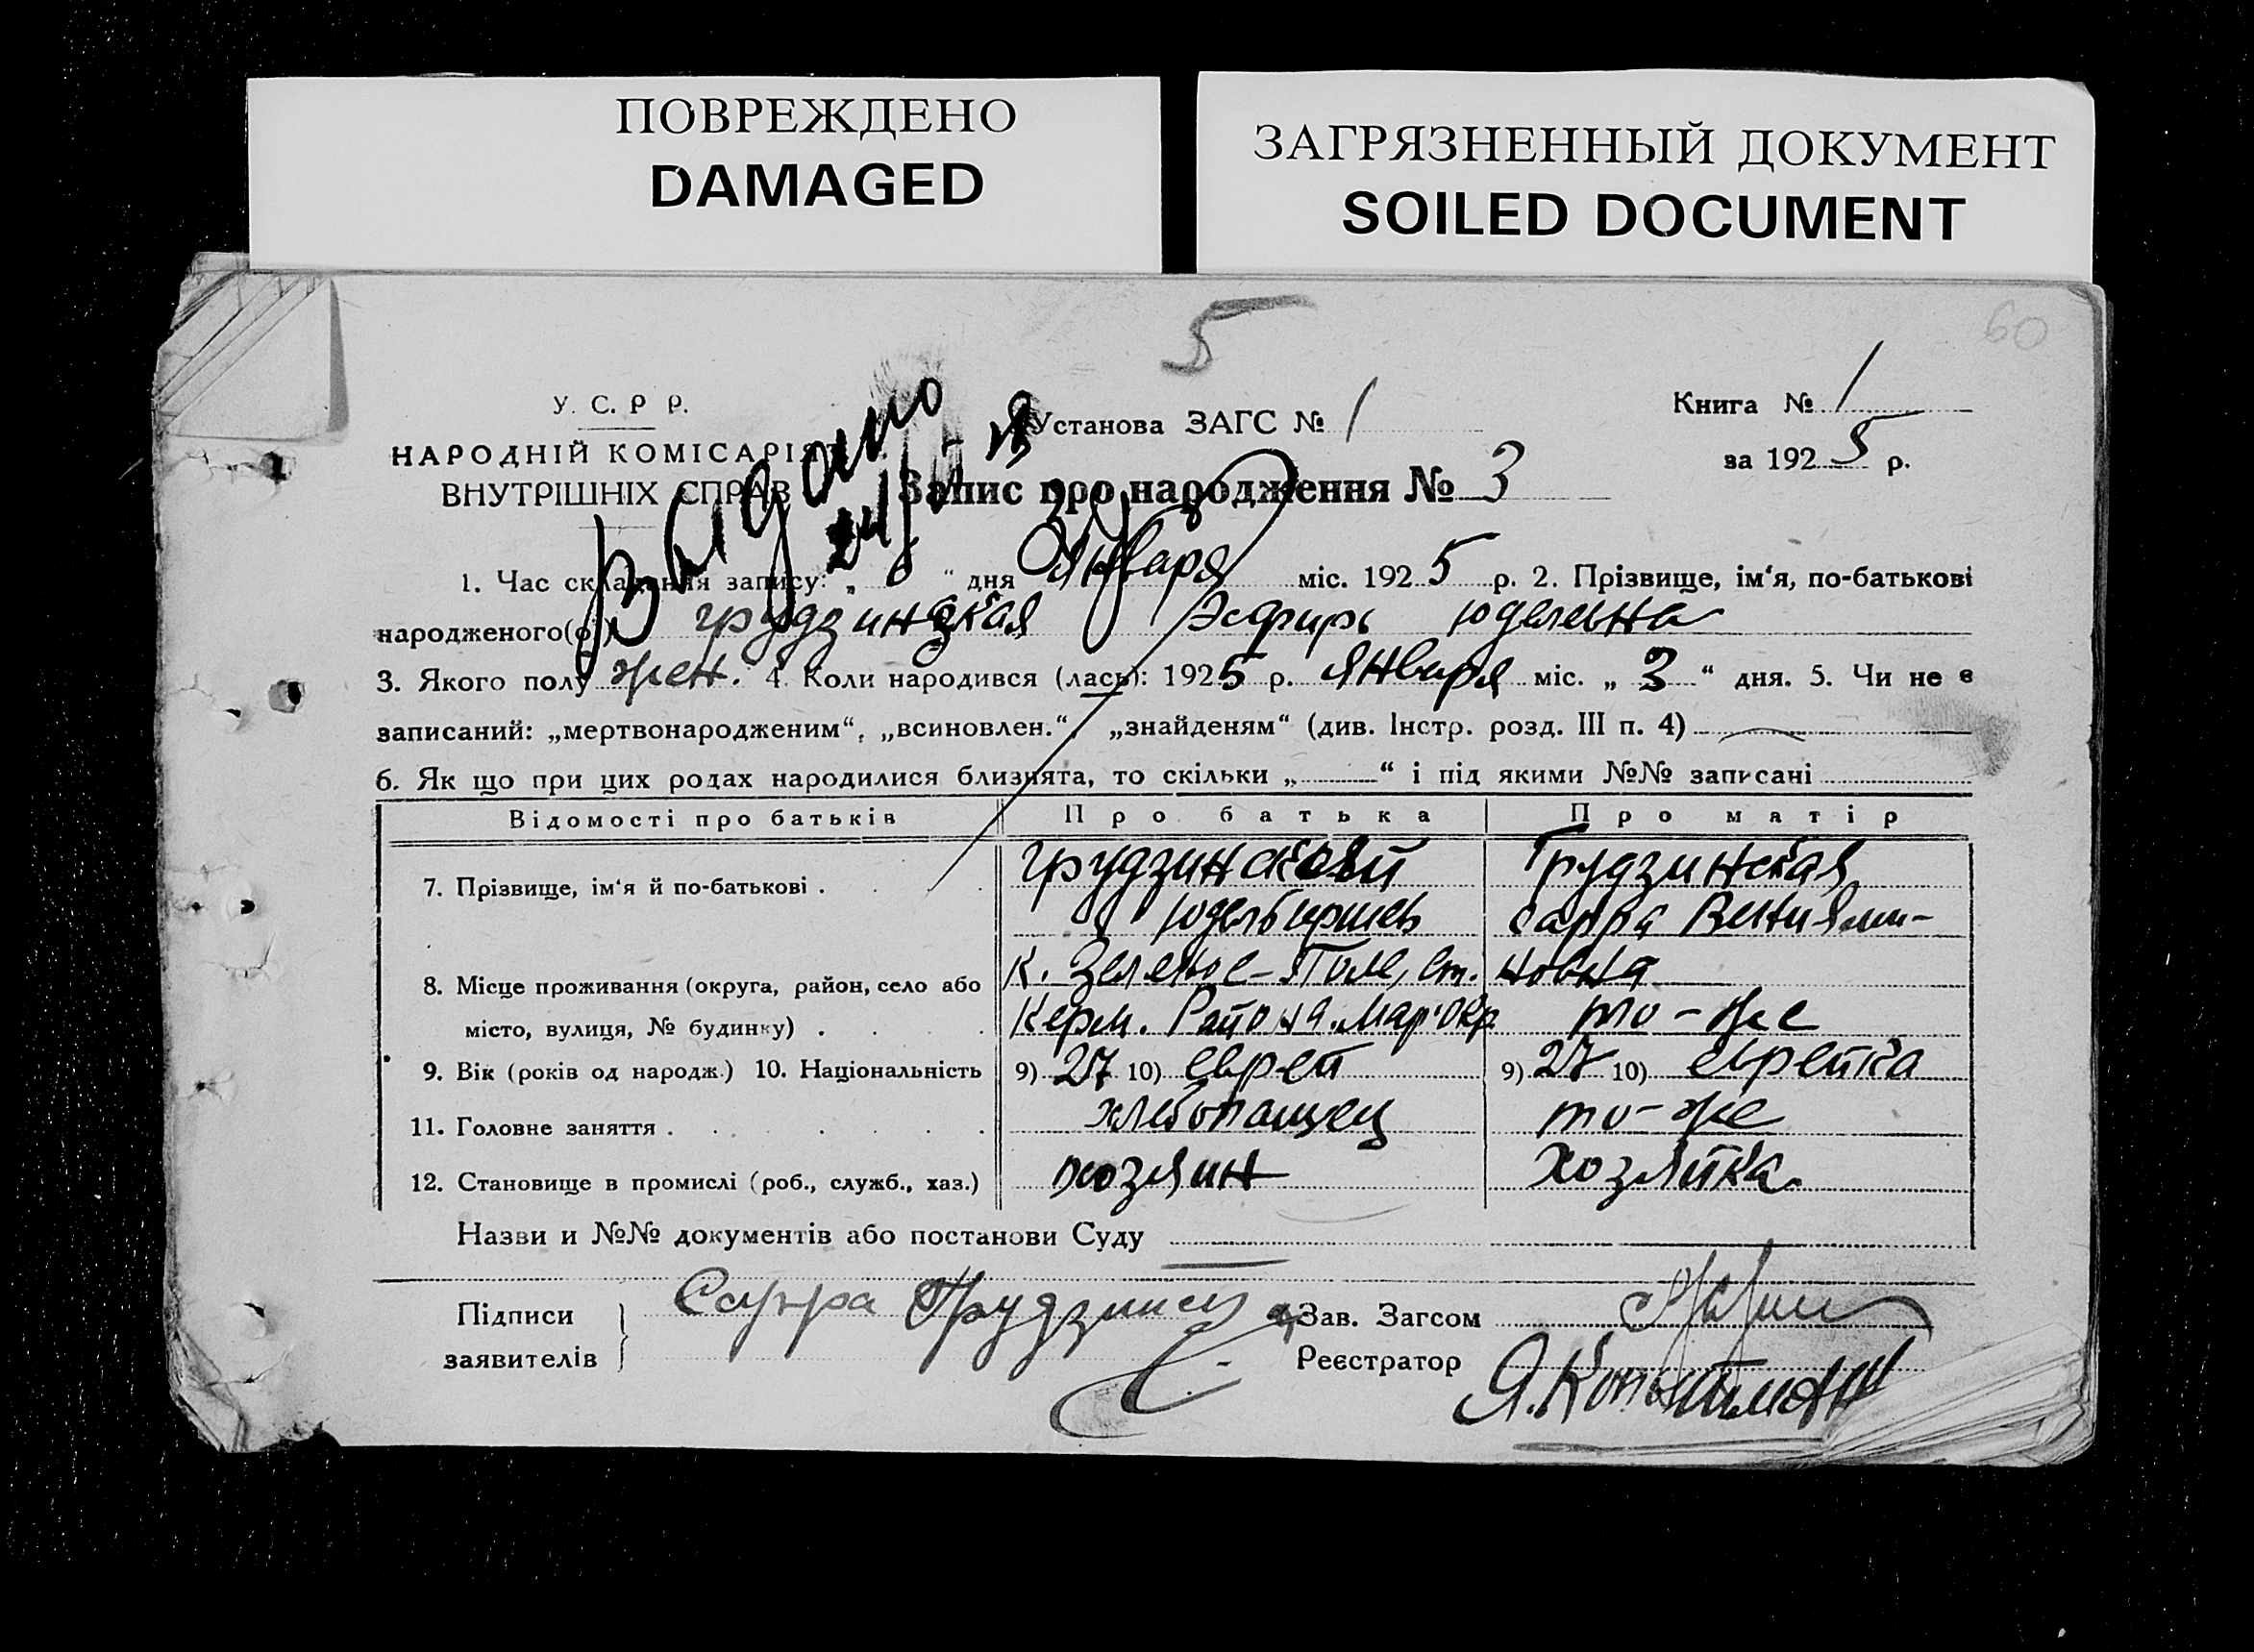 ПОВРЕЖДЕНО
DAMAGED
ЗАГРЯЗНЕННЫЙ ДОКУМЕНТ
SOILED DOCUMENT
5
60
У. С. Р Р.
НАРОДНІЙ КОМІСАРІЯТ
ВНУТРІШНІХ СПРАВ
Видано
Установа ЗАГС № 1
Книга № 1
за 1925 р.
Запис про народження № 3
1. Час складення запису: „ 8 “ дня Января міс. 1925 р. 2. Прізвище, ім‘я, по-батькові
народженого(ої) Грудзинская Эсфирь Юделевна
3. Якого полу жен. 4. Коли народився (лась): 1925 р. Января міс. „ 3 “ дня. 5. Чи не є
записаний: „мертвонародженим“, „всиновлен.“, „знайденям“ (див. Інстр. розд. III п. 4)
6. Як що при цих родах народилися близнята, то скільки „ “ і під якими №№ записані
Відомості про батьків Про батька Про матір
7. Прізвище, ім‘я й по-батькові . Грудзинский Грудзинская
Сарра Вениями-
8. Місце проживання (округа, район, село або К. Зеленое-Поле, ст. новна
місто, вулиця, № будинку) . Керм. Района. Мар. Окр. то-же
9. Вік (років од народж.) 10. Національність 9) 27 10) еврей 9) 27 10) еврейка
11. Головне заняття . хлебопашец то-же
12. Становище в промислі (роб., служб., хаз.) хозяин хозяйка.
Назви и №№ документів або постанови Суду
Підписи Сарра Грудзинск Зав. Загсом
заявителів Реєстратор